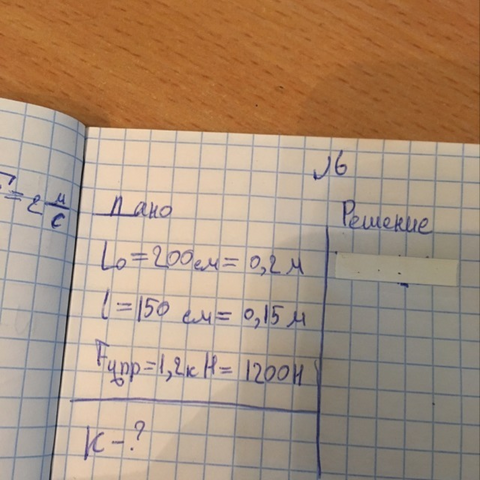 = 2 м/с
№6
Дано
Решение
L₀ = 200 см = 0,2 м
l = 150 см = 0,15 м
Fупр = 1,2 кН = 1200 Н
K - ?